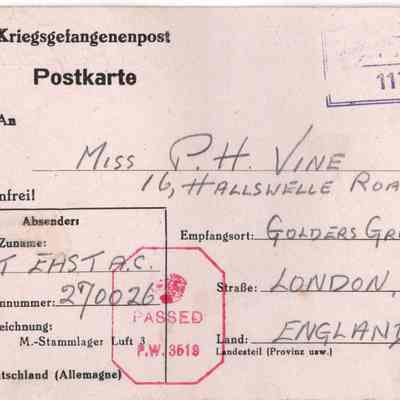 Kriegsgefangenenpost
Postkarte
An
MISS P. H. VINE
16, HALLSWELLE ROA
nfrei!
Absender:
Zuname:
T EAST A.C.
nnummer: 270026
eichnung:
M.-Stammlager Luft 3
utschland (Allemagne)
Empfangsort: GOLDERS GR
Straße: LONDON,
Land: ENGLAND
Landesteil (Provinz usw.)
PASSED
P.W. 3518
11